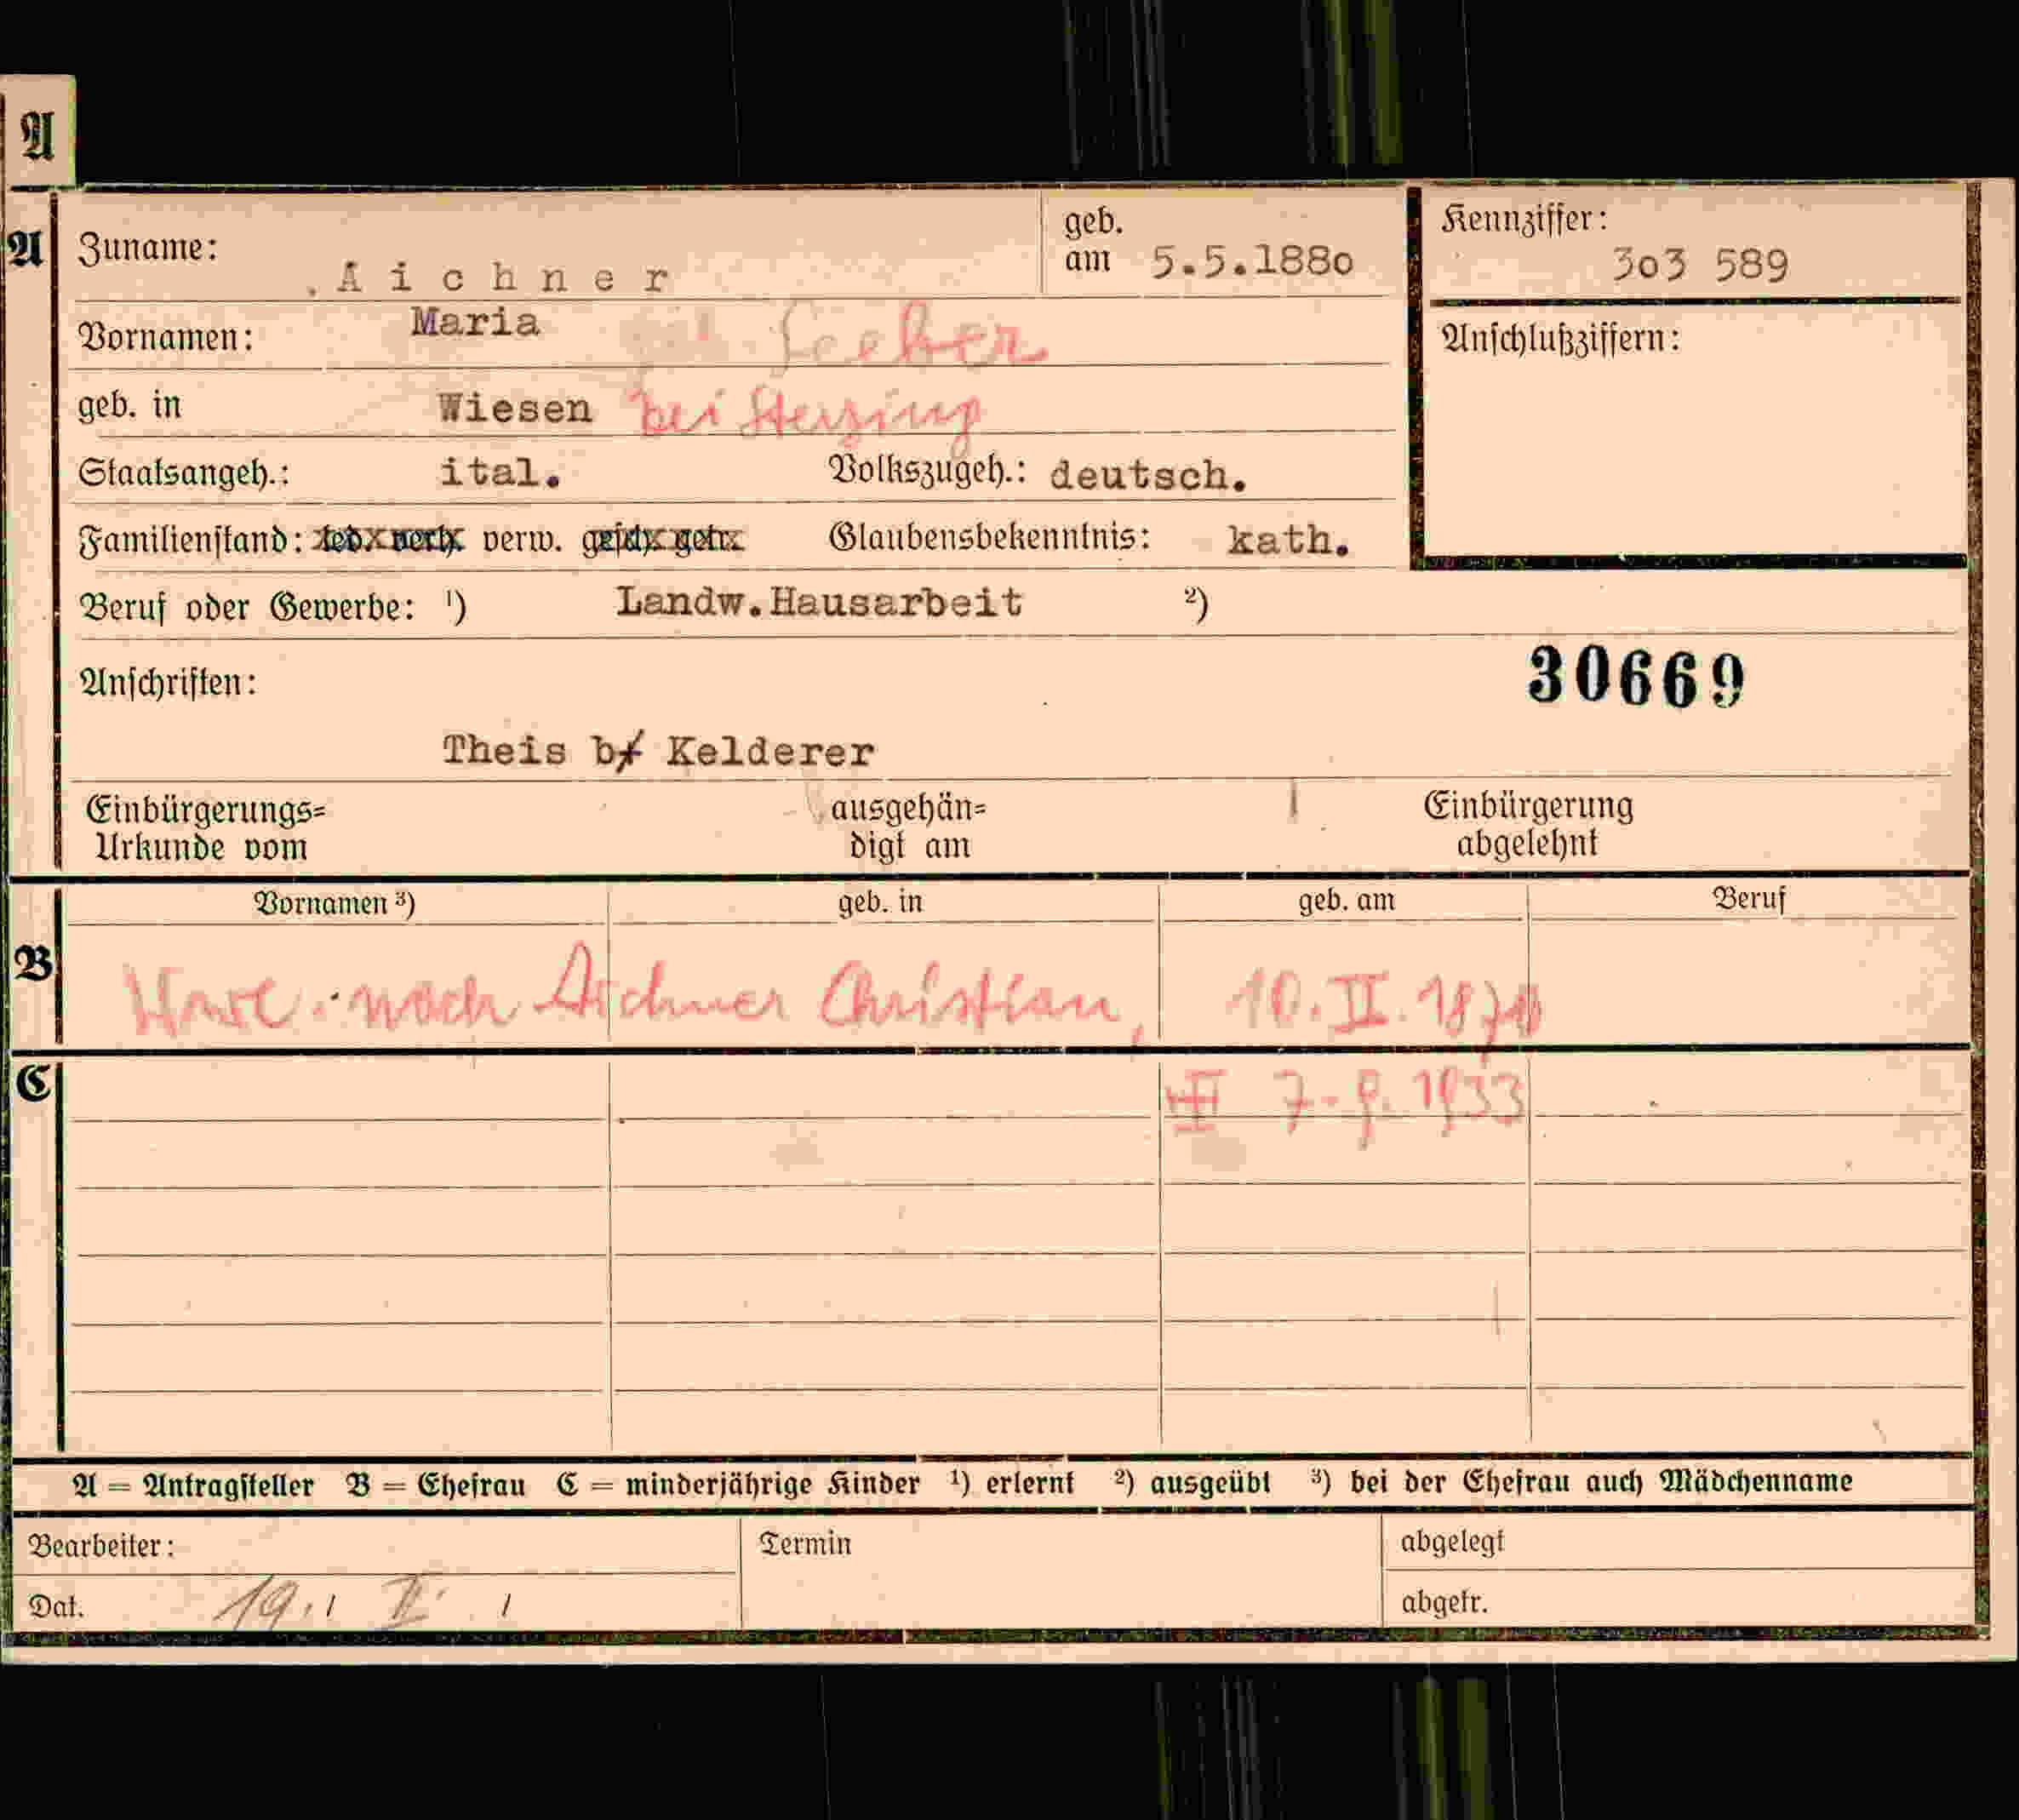 A
A
Zuname: Aichner
geb. am 5.5.1880
Kennziffer: 303 589
Vornamen: Maria Seeber
Anschlußziffern:
geb. in Wiesen bei Sterzing
Staatsangeh.: ital. Volkszugeh.: deutsch.
Familienstand: led. verh. verw. gesch. getr. Glaubensbekenntnis: kath.
Beruf oder Gewerbe: ¹) Landw.Hausarbeit ²)
Anschriften: 30669
Theis b/ Kelderer
Einbürgerungs=
Urkunde vom
ausgehän=
digt am
Einbürgerung
abgelehnt
Vornamen ³) geb. in geb. am Beruf
B
Wwe. nach Aichner Christian, 10.II.1870
C
7-9.1933
A = Antragsteller B = Ehefrau C = minderjährige Kinder ¹) erlernt ²) ausgeübt ³) bei der Ehefrau auch Mädchenname
Bearbeiter: Termin abgelegt
Dat. 19./ II. / abgetr.